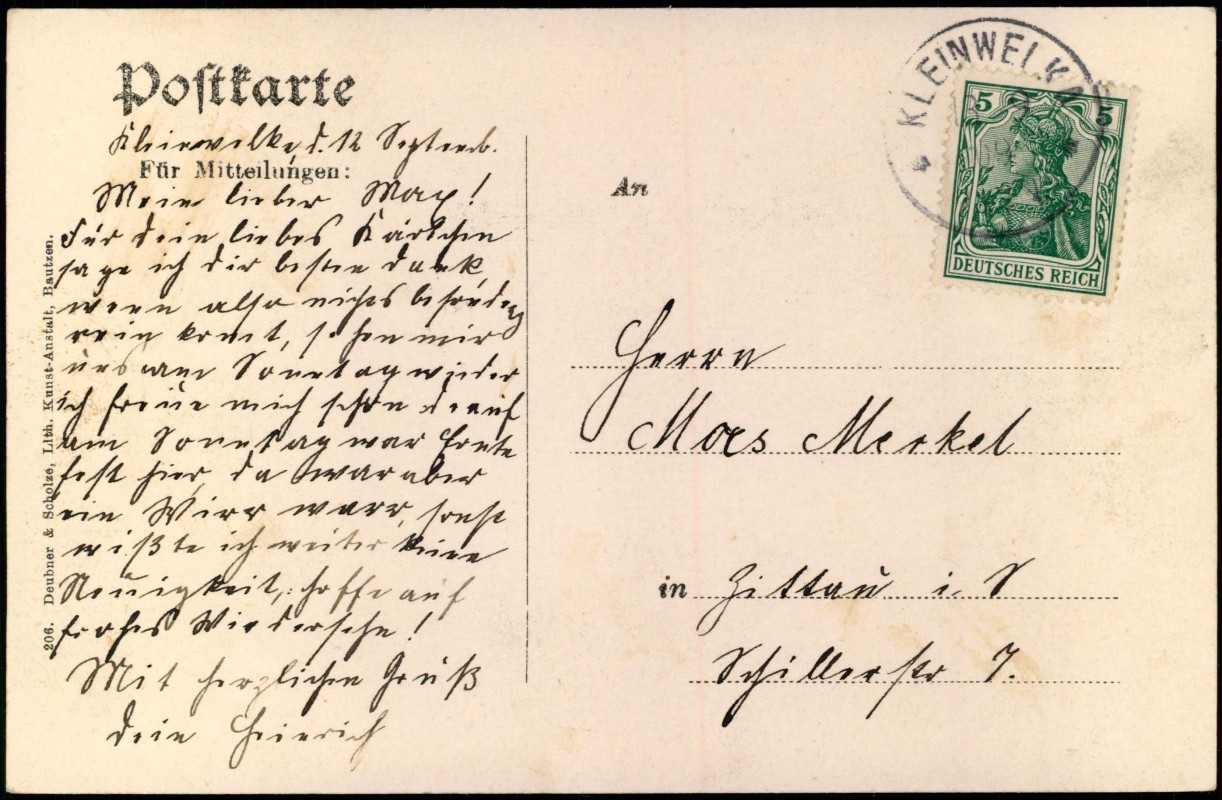 Postkarte
Kleinwelka, d. 12 Septemb.
Für Mitteilungen:
Mein lieber Max!
Für dein liebes Kärtchen
sage ich dir besten dank,
wenn also nichts besonde-
rein komt, sehen wir
uns am Sonntag wieder
ich freue mich schon drauf
am Sonntag war Ernte
fest hier, da war aber
ein Wirr warr, sonst
wißte ich weiter keine
Neuigkeit, hoffe auf
frohes Wiedersehn!
Mit herzlichen Gruß
dein Heinrich
206. Deubner & Scholze, Lith. Kunst-Anstalt, Bautzen.
KLEINWELKA
5 5
DEUTSCHES REICH
An
Herrn
Merkel
in Zittau i. S
Schillerstr 7.